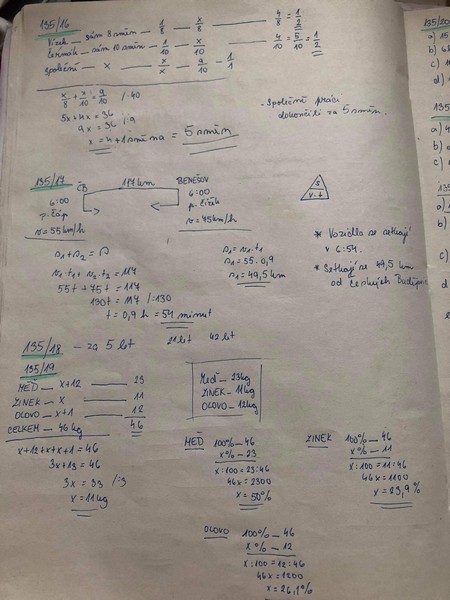 135/16
Vízek – sám 8 směn – 1/8 – x/8 — 4/8 = 1/2
Čermák – sám 10 směn – 1/10 – x/10 — 4/10 = 5/10 = 1/2
společně – x – x – 9/10 – 1/1
x/8 + x/10 = 9/10 /·40
5x+4x = 36
9x = 36 /:9
x = 4 + 1 směna = 5 směn
- Společně práci
dokončili za 5 směn.
135/17
ČB 117 km BENEŠOV
6:00 6:00
p. Čáp p. Čížek
v = 55 km/h v = 75 km/h
s
v·t
s1 + s2 = s
v1·t1 + v2·t2 = 117
55t + 75t = 117
130t = 117 /:130
t = 0,9 h = 54 minut
s1 = v1·t1
s1 = 55·0,9
s1 = 49,5 km
* Vozidla se setkají
v 6:54.
* Setkají se 49,5 km
od českých Budějovic
135/18 – za 5 let 21 let 42 let
135/19
MĚĎ — x+12 — 23
ZINEK — x — 11
OLOVO — x+1 — 12
CELKEM – 46 kg 46
x+12+x+x+1 = 46
3x+13 = 46
3x = 33 /:3
x = 11 kg
MĚĎ – 23 kg
ZINEK – 11 kg
OLOVO – 12 kg
MĚĎ 100% – 46
x% – 23
x:100 = 23:46
46x = 2300
x = 50%
ZINEK 100% – 46
x% – 11
x:100 = 11:46
46x = 1100
x = 23,9 %
OLOVO 100% – 46
x% – 12
x:100 = 12:46
46x = 1200
x = 26,1%
135/20
a) 15
b)
c)
d)
135
a)
b)
c)
135
a)
b)
c)
d